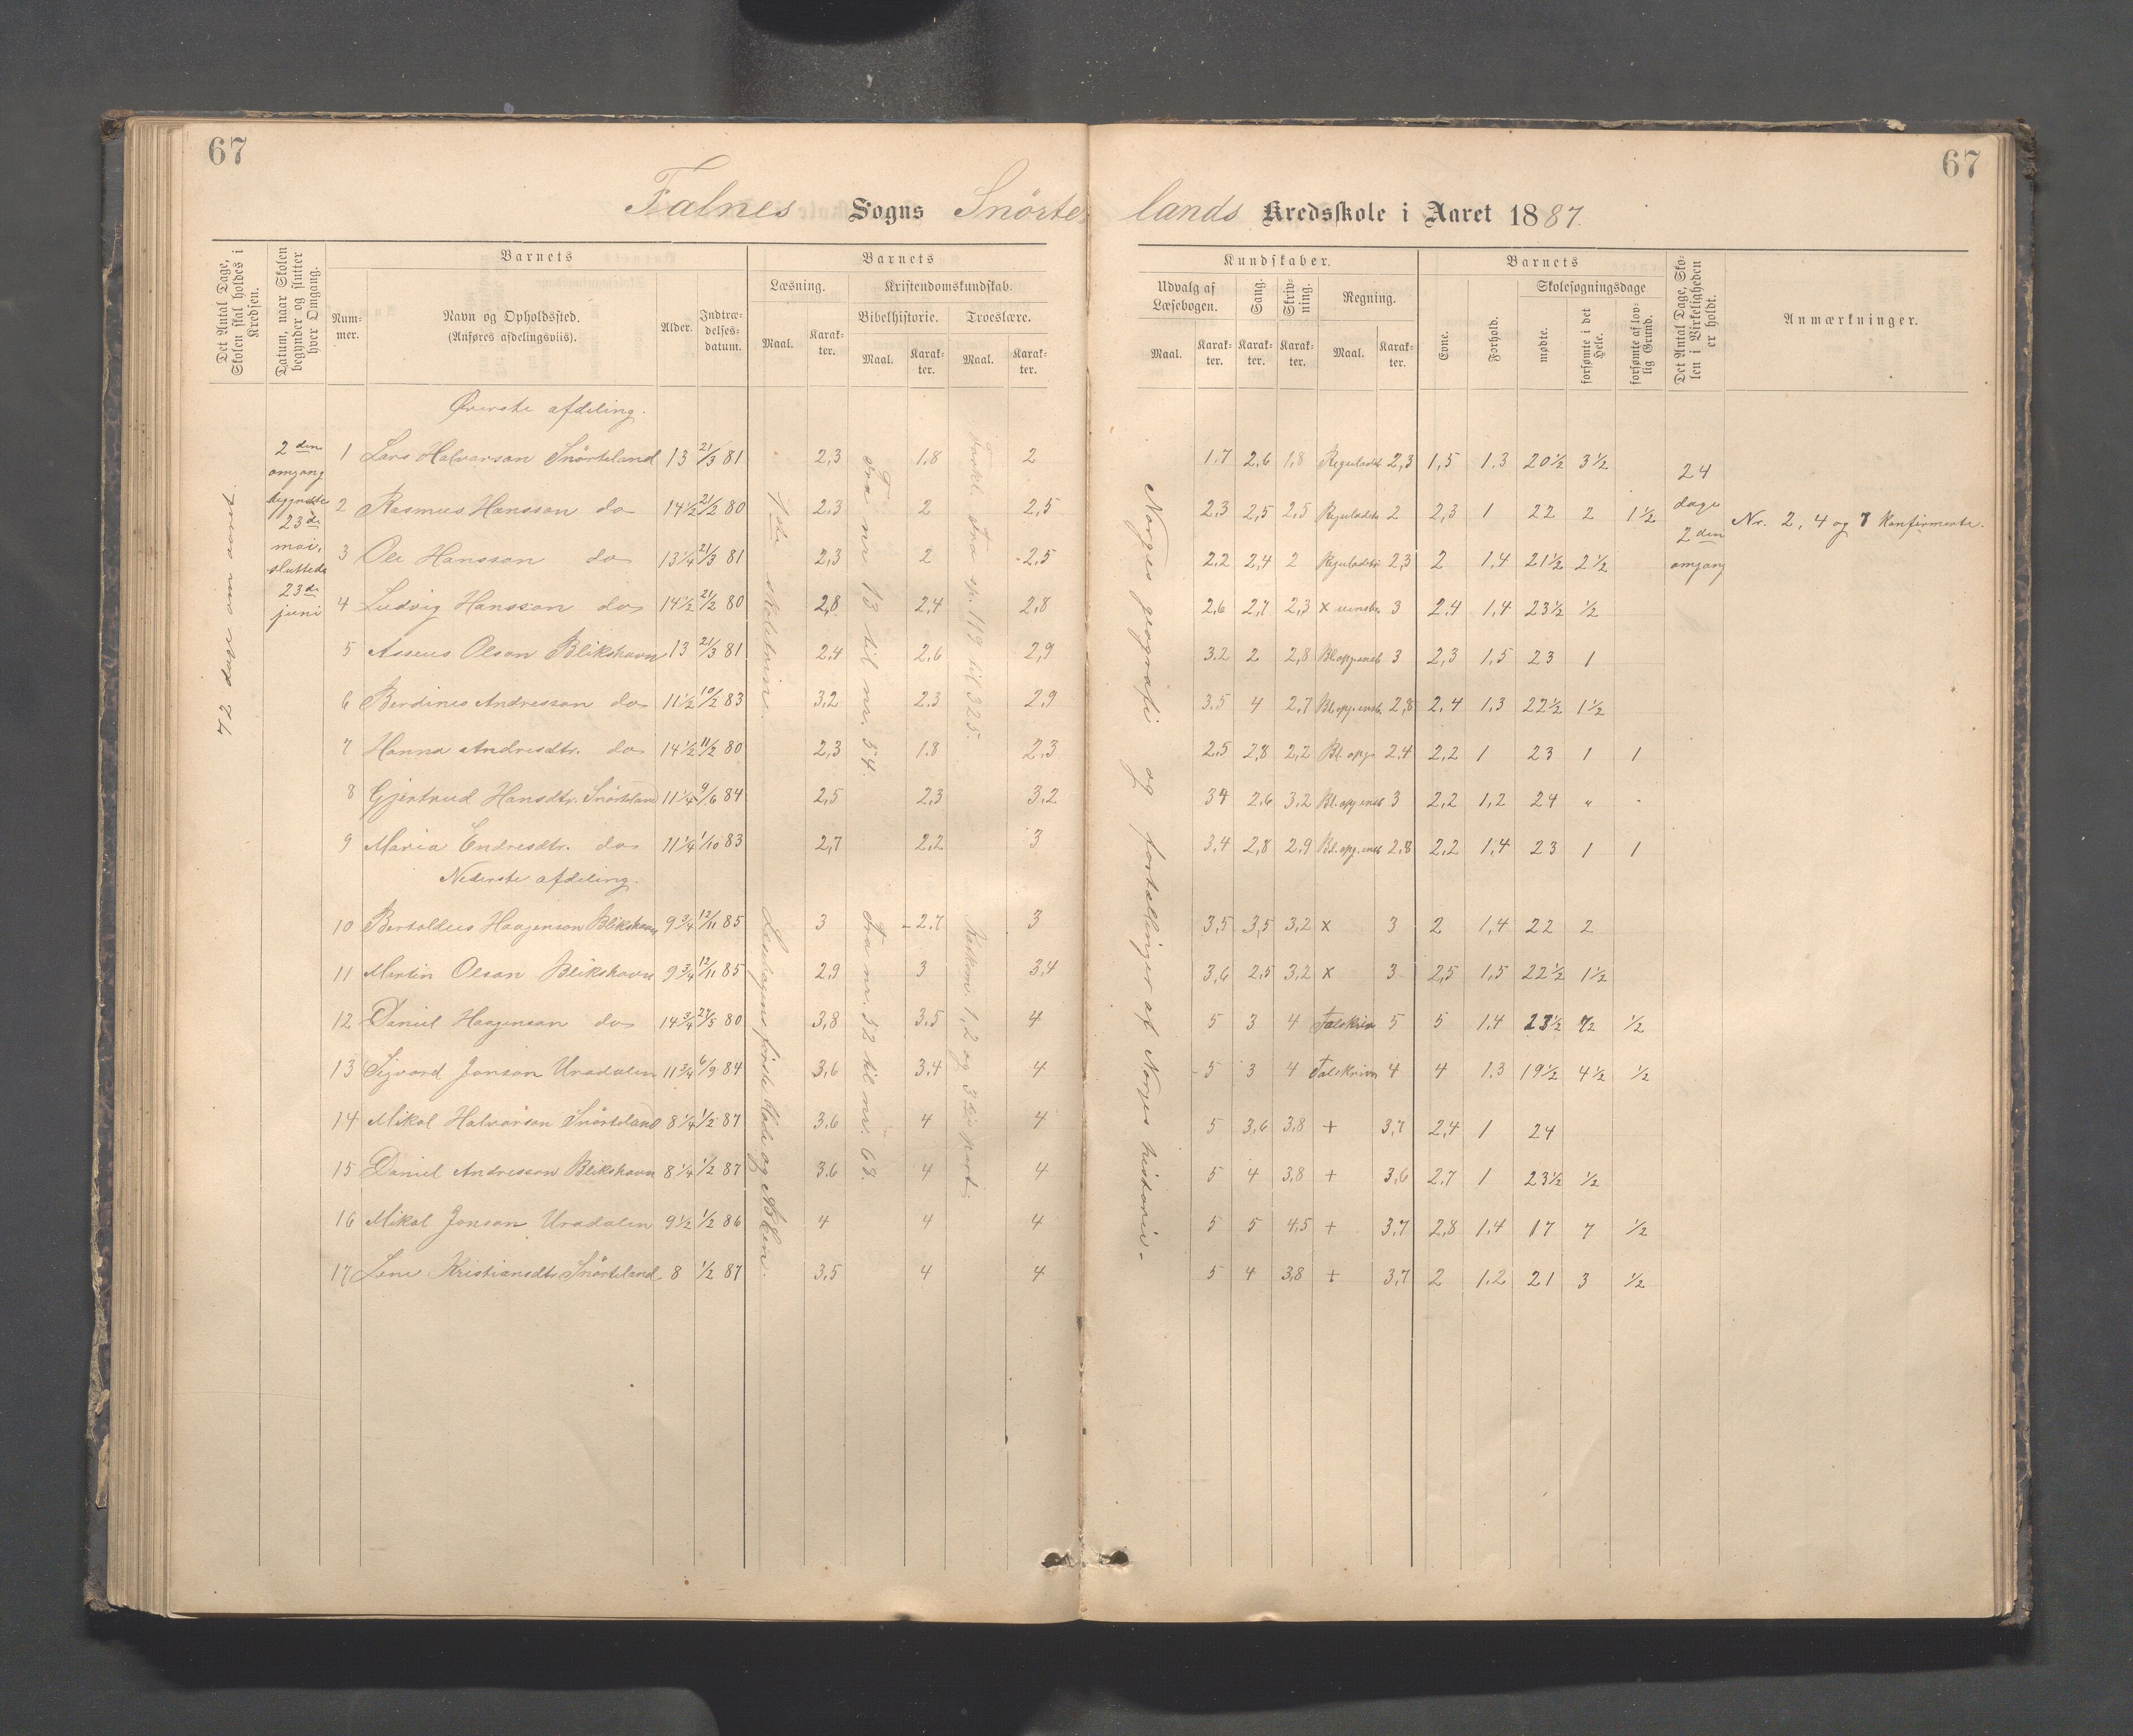 67
67
Falnes Sogns Snørte lands Kredsskole i Aaret 1887.
Det Antal Dage, Skolen skal holdes i Kredsen.
Datum, naar Skolen begynder og slutter hver Omgang.
Barnets
Num-mer.
Navn og Opholdssted. (Anføres afdelingsviis).
Alder.
Indtræ-delses-datum.
Barnets
Læsning.
Maal.
Karak-ter.
Kristendomskundskab.
Bibelhistorie.
Maal.
Karak-ter.
Troeslære.
Maal.
Karak-ter.
Kundskaber.
Udvalg af Læsebogen.
Maal.
Karak-ter.
Sang.
Karak-ter.
Skriv-ning.
Karak-ter.
Regning.
Maal.
Karak-ter.
Barnets
Evne.
Forhold.
Skolesøgningsdage
mødte.
forsømte i det Hele.
forsømte af lov-lig Grund.
Det Antal Dage, Sko-len i Virkeligheden er holdt.
Anmærkninger.
72 dage om aaret.
2den omgang begyndte 23de mai, sluttede 23de juni
Øverste afdeling.
1 Lars Halvarson Snørteland 13 21/3 81 2,3 1,8 2 1,7 2,6 1,8 Reguladet 2,3 1,5 1,3 20½ 3½
2 Rasmus Hansson do 14½ 21/2 80 2,3 2 2,5 2,3 2,5 2,5 Reguladet 2 2,3 1 22 2 1½
3 Ole Hansson do 13¼ 21/3 81 2,3 2 2,5 2,2 2,4 2 Reguladetr 2,3 2 1,4 21½ 2½
4 Ludvig Hansson do 14½ 21/2 80 2,8 2,4 2,8 2,6 2,7 2,3 x 3 2,4 1,4 23½ ½
5 Asseus Olson Blikshavn 13 21/3 81 2,4 2,6 2,9 3,2 2 2,8 Bl.opg.ensb 3 2,3 1,5 23 1
6 Berdines Andresson do 11½ 10/2 83 3,2 2,3 2,9 3,5 4 2,7 Bl.opg.ensb. 2,8 2,4 1,3 22½ 1½
7 Hanna Andresdtr. do 14½ 11/2 80 2,3 1,8 2,3 2,5 2,8 2,2 Bl. opg. 2,4 2,2 1 23 1 1
8 Gjertrud Hansdtr. Snørteland 11¼ 9/6 84 2,5 2,3 3,2 3,4 2,6 3,2 Bl.opg.ensb 3 2,2 1,2 24 " "
9 Maria Endresdtr. do 11¼ 1/10 83 2,7 2,2 3 3,4 2,8 2,9 Bl.opg.ensb 2,8 2,2 1,4 23 1 1
Nederste afdeling.
10 Bertoldus Haagenson Blikshavn 9¾ 12/11 85 3 2,7 3 3,5 3,5 3,2 x 3 2 1,4 22 2
11 Martin Olson Blikshavn 9¾ 12/11 85 2,9 3 3,4 3,6 2,5 3,2 x 3 2,5 1,5 22½ 1½
12 Daniel Haagenson do 14¾ 27/5 80 3,8 3,5 4 5 3 4 Talskrivn 5 5 1,4 23½ ½ ½
13 Sigvard Jonson Uradalen 11¾ 6/9 84 3,6 3,4 4 5 3 4 Talskrivn 4 4 1,3 19½ 4½ ½
14 Mikal Halvarson Snørteland 8¼ 1/2 87 3,6 4 4 5 3,6 3,8 + 3,7 2,4 1 24
15 Daniel Andresson Blikshavn 8¼ 1/2 87 3,6 4 4 5 4 3,8 + 3,6 2,7 1 23½ ½
16 Mikal Jonson Uradalen 9½ 1/2 86 4 4 4 5 5 4,5 + 3,7 2,8 1,4 17 7 ½
17 Lene Kristiansdtr Snørteland 8 1/2 87 3,5 4 4 5 4 3,8 + 3,7 2 1,2 21 3 ½
1ste skoletrin.
Læsebogens første dele og Biblen.
Fra nr. 13 til nr. 54.
Fra nr. 52 til nr. 68.
Forkl. fra sp. 119 til 325.
Katekm. 1, 2 og 3die part
Norges geografi og fortællinger af Norges historie.
24 dage 2den omgang
Nr. 2, 4 og 7 konfirmerte.